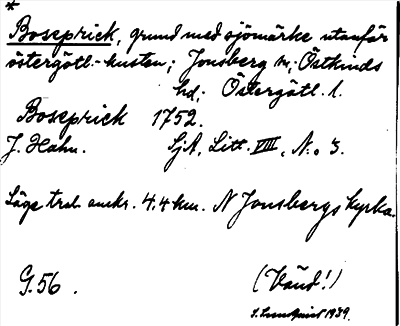 *
Boseprick, grund med sjömärke utanför
östergötl.-kusten; Jonsberg sn, Östkinds
hd; Östergötl. l.
Boseprick 1752.
J. Hahn. SjA, Litt. VIII, N:o 3.
Läge trol. omkr. 4.4 km. N Jonsbergs kyrka.
G. 56. (Vänd!)
S. Lundquist 1939.